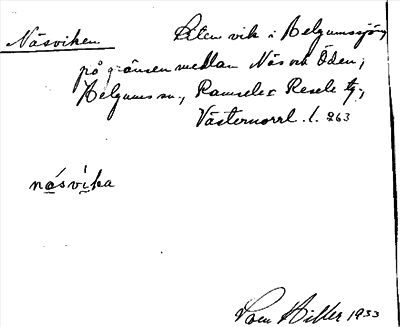 Näsviken
Liten vik i Helgumssjön
på gränsen mellan Näs och Öden,
Helgums sn., Ramsele o Resele tg,
Västernorrl. l. 263
näsvika
Hiller 1933